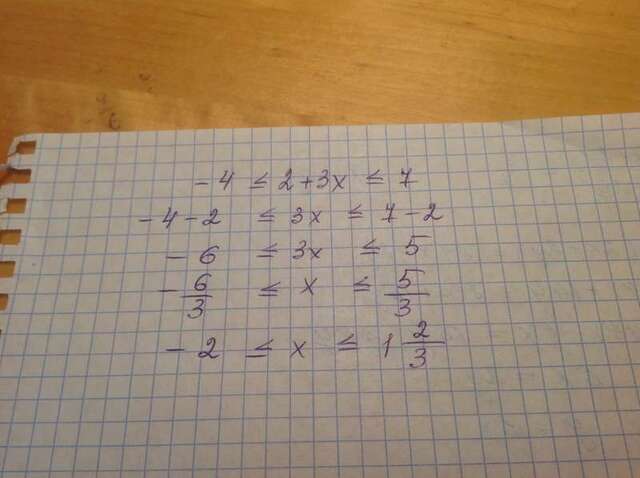 -4 ≤ 2+3x ≤ 7
-4-2 ≤ 3x ≤ 7-2
-6 ≤ 3x ≤ 5
-6/3 ≤ x ≤ 5/3
-2 ≤ x ≤ 1 2/3